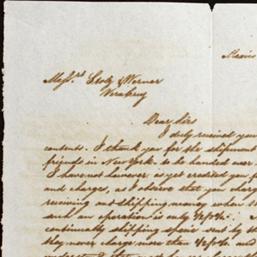 Mexico
Messrs. Leotz & Werner
Veracruz
Dear Sirs
I duly received your
contents. I thank you for the shipment
friends in New York to be handed over
I have not however as yet credited you f
and charge, as I observe that you charg
receiving and shipping money when th
such an operation is only 1/2 p%.
continually shipping specie sent by th
they never charge more than 1/2 p% and